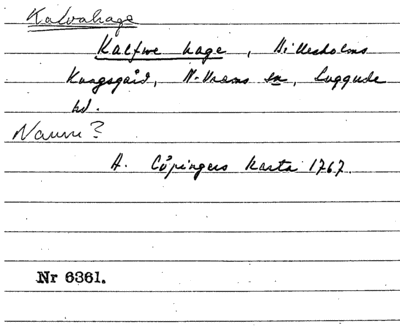 Kalvahage
Kalfwe hage, Billesholms
Kungsgård, N. Vrams sn, Luggude
hd.
Namn?
A. Cöpingers karta 1767.
Nr 6361.